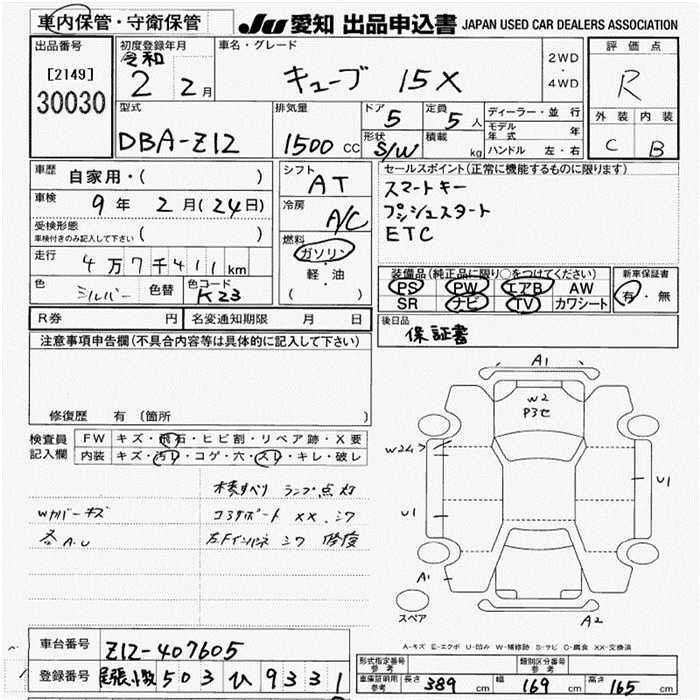 車内保管・守衛保管
JU 愛知 出品申込書 JAPAN USED CAR DEALERS ASSOCIATION
出品番号
[2149]
30030
初度登録年月
令和
2 2月
車名・グレード
キューブ 15X
2WD
・
4WD
評価点
R
外装 内装
C B
型式
DBA-Z12
排気量
1500 CC
ドア
5
定員
5人
形状
S/W
積載
kg
ディーラー・並行
モデル年式 年
ハンドル 左・右
車歴
自家用・( )
車検
9年 2月(24日)
受検形態
車検付きのみ記入して下さい ( )
走行
4万7千411km
色
シルバー
色替
色コード
K23
シフト
AT
冷房
A/C
燃料
ガソリン
・
軽・油
( )
セールスポイント(正常に機能するものに限ります)
スマートキー
プッシュスタート
ETC
装備品(純正品に限り○をつけてください)
PS PW エアB AW
SR ナビ TV カワシート
新車保証書
有・無
R券 円
名変通知期限 月 日
後日品
保証書
注意事項申告欄(不具合内容等は具体的に記入して下さい)
修復歴 有(箇所
検査員記入欄
FW キズ・飛石・ヒビ割・リペア跡・X要
内装 キズ・汚れ・コゲ・穴・スレ・キレ・破レ
ランプ点灯
Wカバーキズ
コアサポート XX.シワ
各A.U
左Fインパネ シワ 修復
A1
W2
P3セ
W2
U1
U1
A1
スペア
A2
A-キズ E-エクボ U-凹み W-補修跡 S-サビ C-腐食 XX-交換済
車台番号
Z12-407605
登録番号
尾張小牧 503 ひ 9331
形式指定番号
参考
類別区分番号
参考
車庫証明用
参考
長さ 389 cm
幅 169 cm
高さ 165 cm